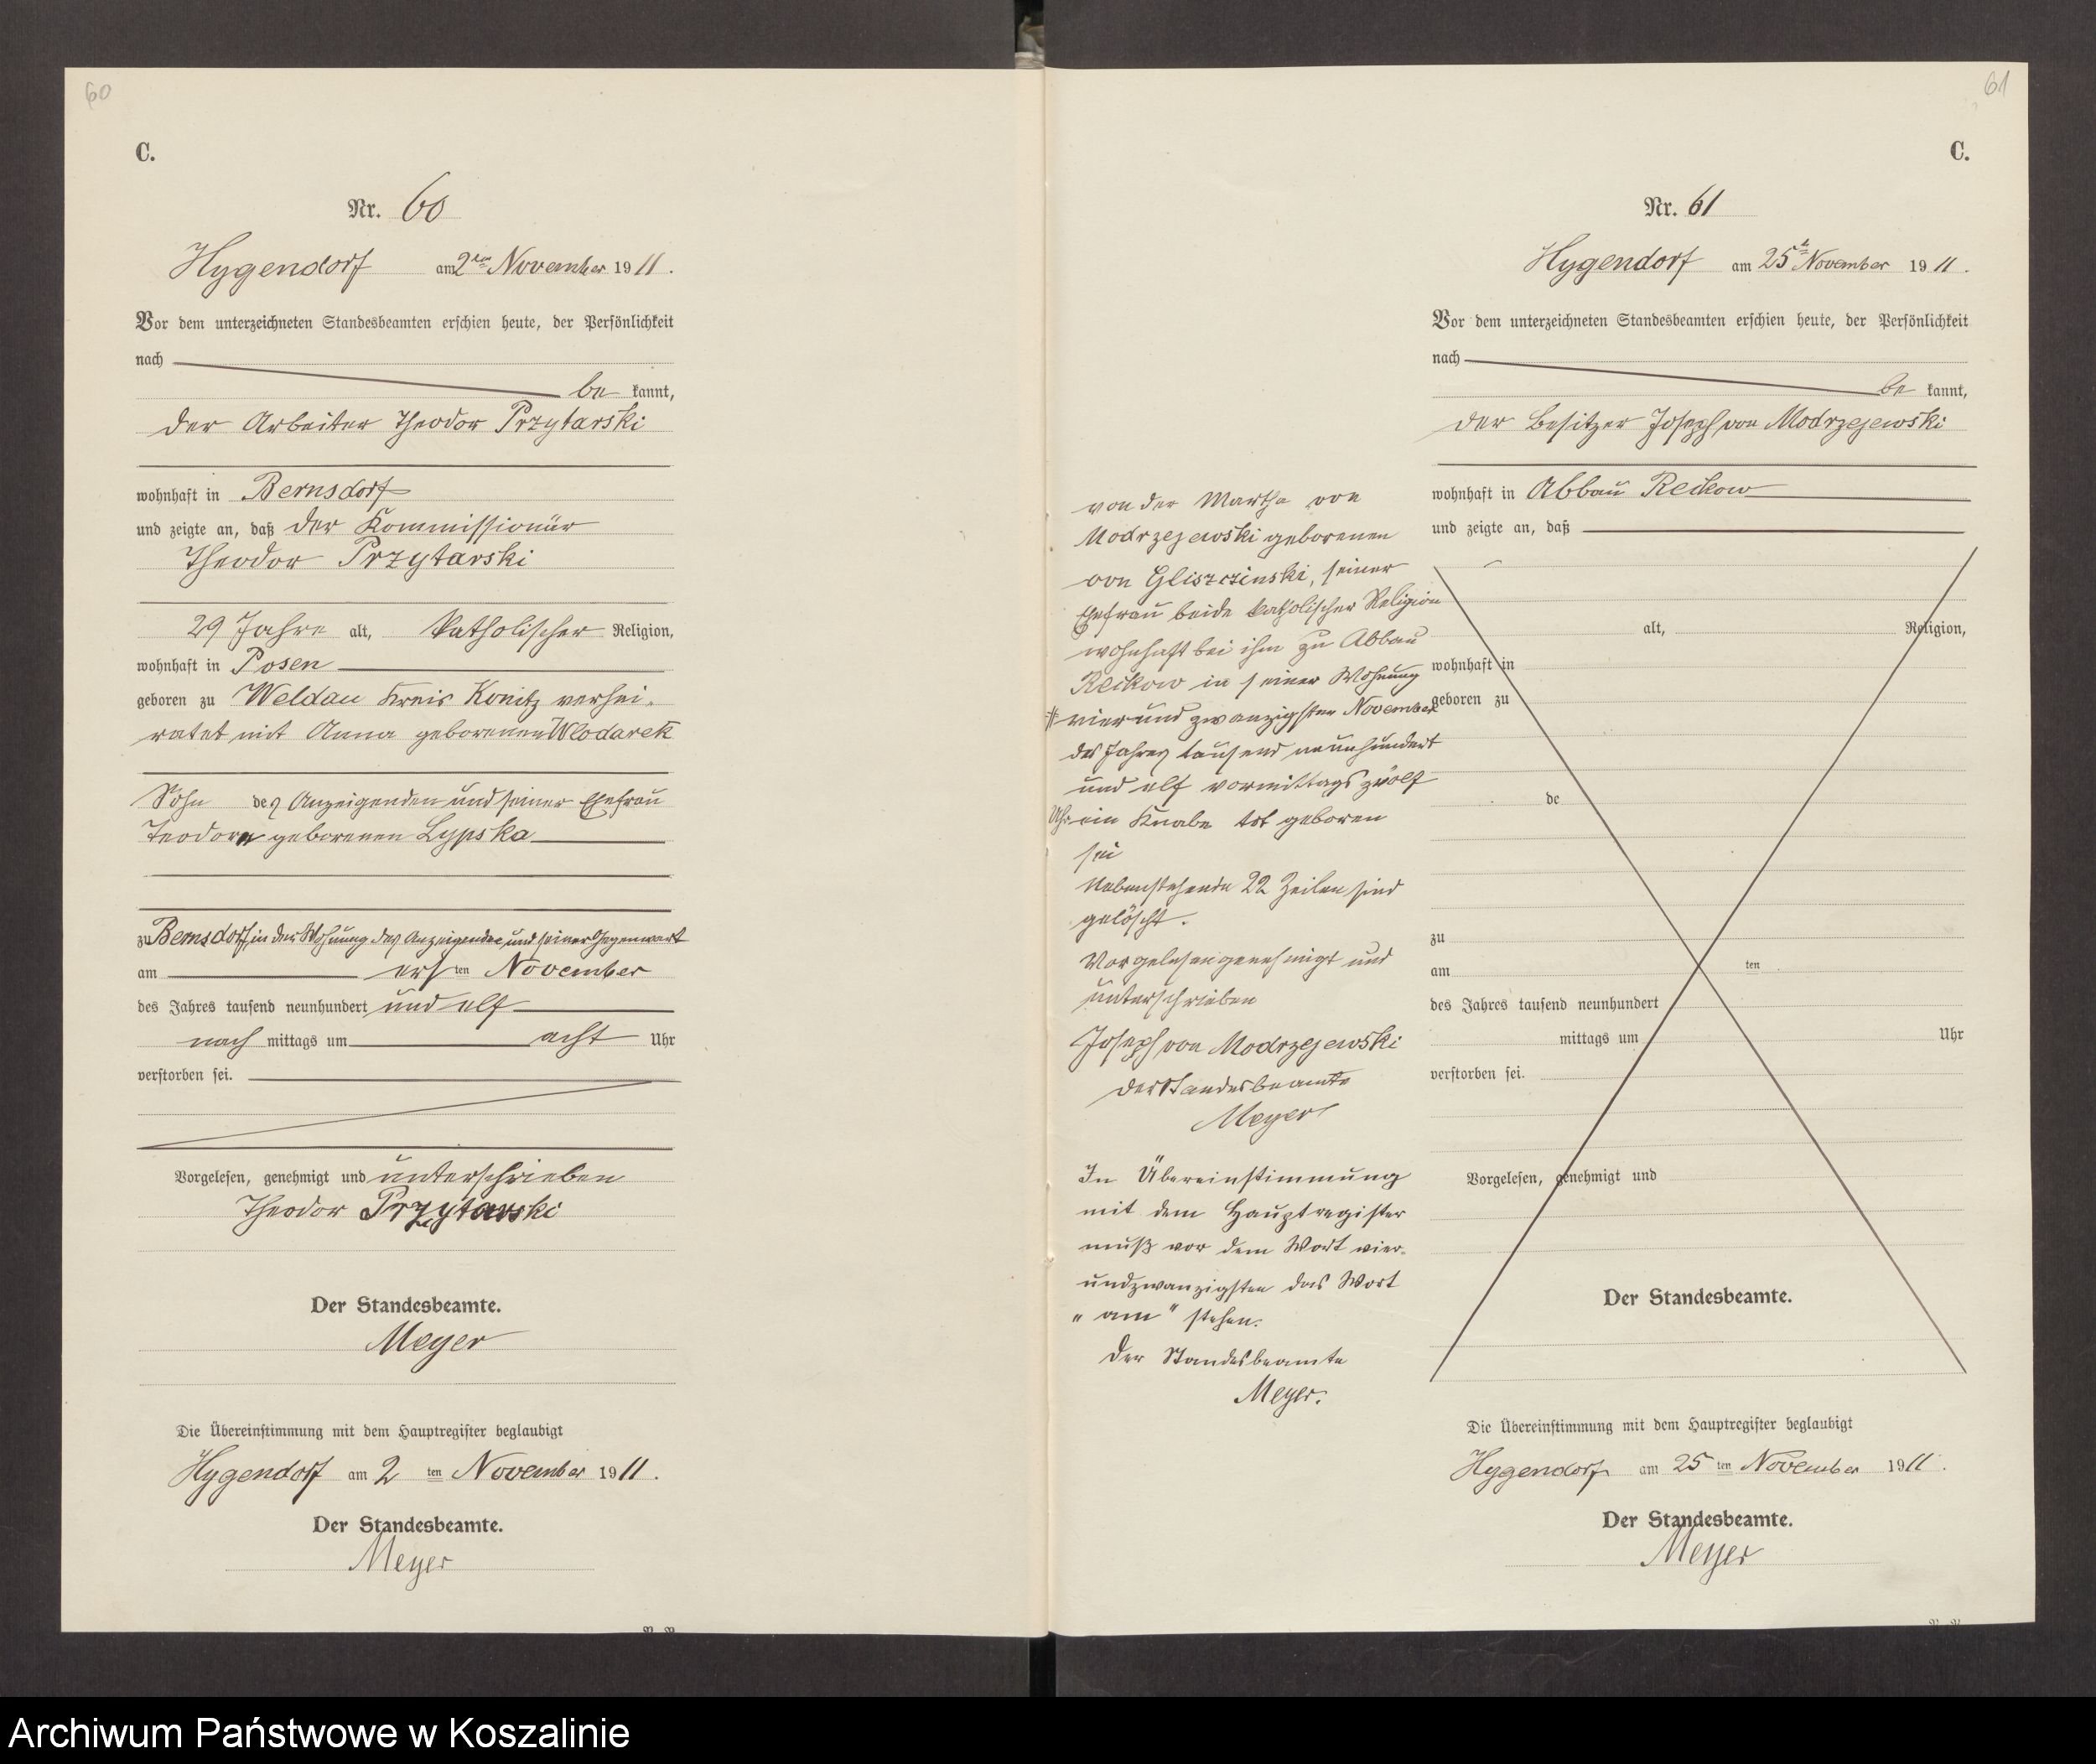 60
C.
Nr. 60
Hygendorf am 2ten November 1911.
Vor dem unterzeichneten Standesbeamten erschien heute, der Persönlichkeit
nach
be kannt,
der Arbeiter Theodor Przytarski
wohnhaft in Bernsdorf
und zeigte an, daß der Kommissionär
Theodor Przytarski
29 Jahre alt, katholischer Religion,
wohnhaft in Posen
geboren zu Weldau Kreis Konitz verhei-
ratet mit Anna geborenen Wlodarek
Sohn des Anzeigenden und seiner Ehefrau
Teodora geborenen Lypska
zu Bernsdorf, in der Wohnung des Anzeigenden und seiner Gegenwart
am ersten November
des Jahres tausend neunhundert und elf
nach mittags um acht Uhr
verstorben sei.
Vorgelesen, genehmigt und unterschrieben
Theodor Przytarski
Der Standesbeamte.
Meyer
Die Übereinstimmung mit dem Hauptregister beglaubigt
Hygendorf am 2 ten November 1911.
Der Standesbeamte.
Meyer
61
C.
Nr. 61
Hygendorf am 25t November 1911.
Vor dem unterzeichneten Standesbeamten erschien heute, der Persönlichkeit
nach
be kannt,
der Besitzer Joseph von Modrzejewski
wohnhaft in Abbau Reckow
und zeigte an, daß
von der Martha von
Modrzejewski geborenen
von Gliszczinski, seiner
Ehefrau beide katholischer Religion
wohnhaft bei ihm zu Abbau
Reckow in seiner Wohnung
vierundzwanzigsten November
des Jahres tausend neunhundert
und elf vormittags zwölf
Uhr ein Knabe tot geboren
sei
Nebenstehende 22 Zeilen sind
gelöscht.
Vorgelesen genehmigt und
unterschrieben
Joseph von Modrzejewski
Der Standesbeamte
Meyer
In Übereinstimmung
mit dem Hauptregister
muß vor dem Wort vier-
undzwanzigsten das Wort
„am" stehen.
Der Standesbeamte
Meyer.
alt, Religion,
wohnhaft in
geboren zu
de
zu
am ten
des Jahres tausend neunhundert
mittags um Uhr
verstorben sei.
Vorgelesen, genehmigt und
Der Standesbeamte.
Die Übereinstimmung mit dem Hauptregister beglaubigt
Hygendorf am 25 ten November 1911.
Der Standesbeamte.
Meyer
Archiwum Państwowe w Koszalinie